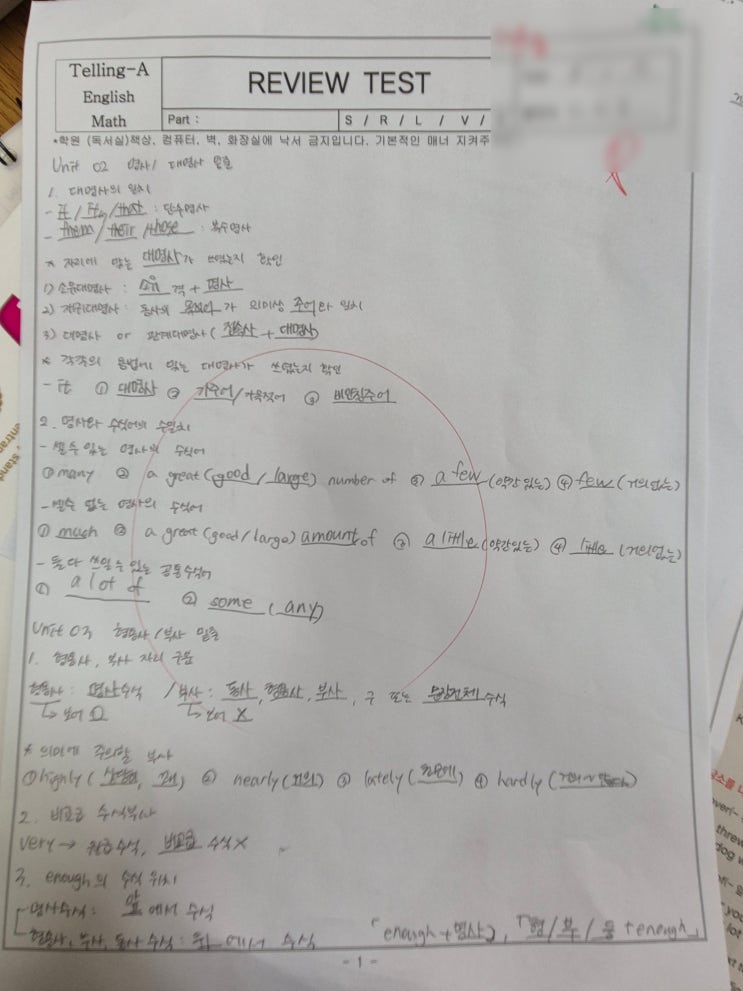 Telling-A
English
Math
REVIEW TEST
Part :
S / R / L / V /
*학원 (독서실)책상, 컴퓨터, 벽, 화장실에 낙서 금지입니다. 기본적인 매너 지켜주
Unit 02 명사/ 대명사 밑줄
1. 대명사의 일치
- it / its / that : 단수명사
- them / their / those : 복수명사
* 자리에 맞는 대명사가 쓰였는지 확인
1) 소유대명사 : 소유격 + 명사
2) 재귀대명사 : 동사의 목적어가 의미상 주어와 일치
3) 대명사 or 관계대명사 ( 접속사 + 대명사)
* 각각의 용법에 맞는 대명사가 쓰였는지 확인
- it ① 대명사 ② 가주어/가목적어 ③ 비인칭주어
2. 명사와 수식어의 수일치
- 셀 수 있는 명사의 수식어
① many ② a great (good / large) number of ③ a few (약간 있는) ④ few ( 거의 없는)
- 셀 수 없는 명사의 수식어
① much ② a great (good / large) amount of ③ a little (약간 있는) ④ little (거의 없는)
- 둘 다 쓰일 수 있는 공통수식어
① a lot of ② some ( any)
Unit 03 형용사 / 부사 밑줄
1. 형용사, 부사 자리 구분
형용사 : 명사수식 / 부사 : 동사, 형용사, 부사, 구 또는 문장전체 수식
↳ 보어 O ↳ 보어 X
* 의미에 주의할 부사
① highly ( 상당히, 꽤) ② nearly (거의) ③ lately (최근에) ④ hardly (거의 ~ 않다)
2. 비교급 수식부사
very → 원급수식, 비교급 수식 X
3. enough의 수식 위치
- 명사수식 : 앞에서 수식
- 형용사, 부사, 동사 수식 : 뒤에서 수식 「enough + 명사」, 「형/부/동 + enough」
- 1 -